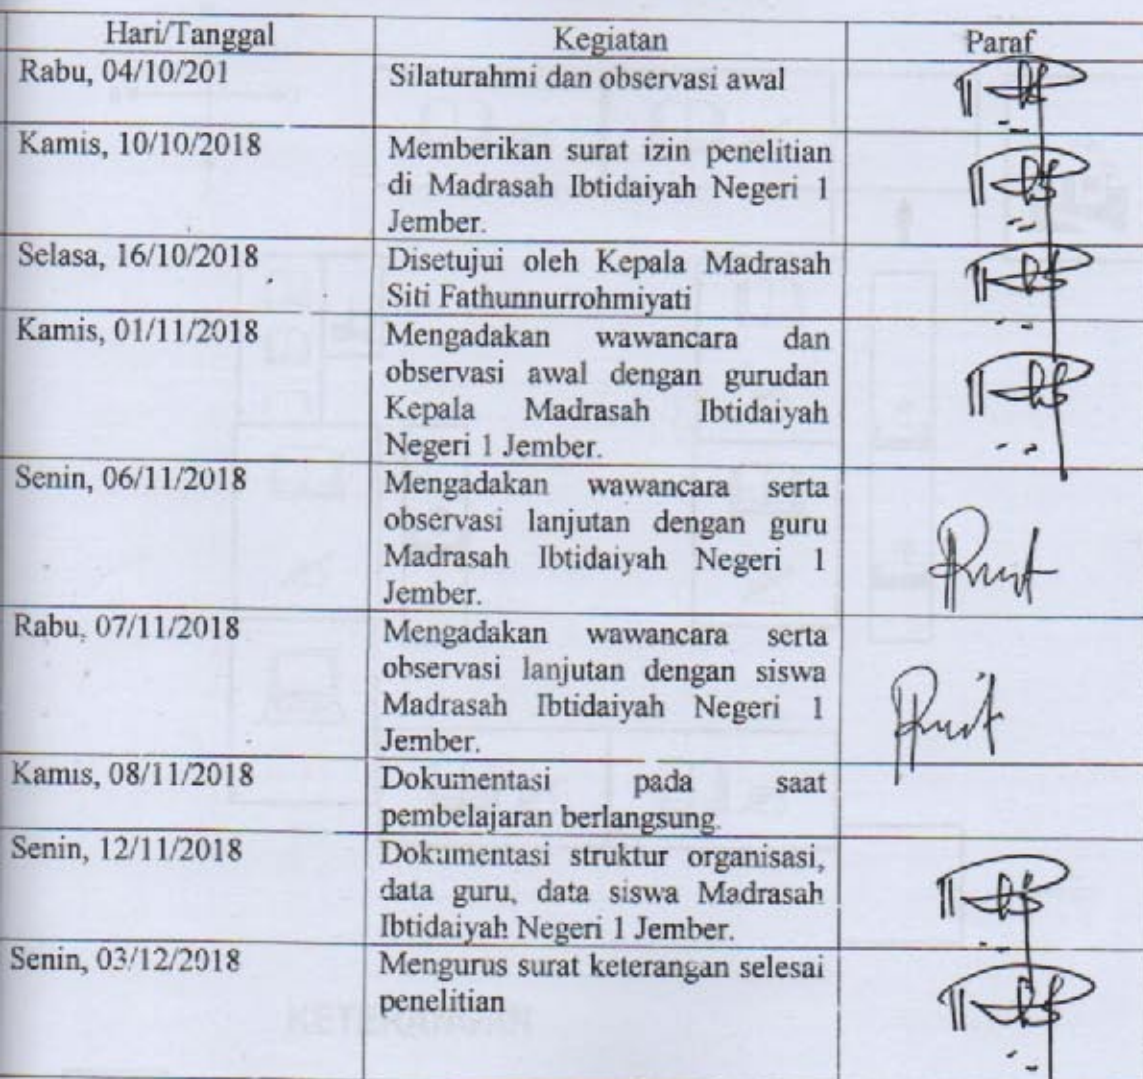 Hari/Tanggal Kegiatan Paraf
Rabu, 04/10/201 Silaturahmi dan observasi awal
Kamis, 10/10/2018 Memberikan surat izin penelitian
di Madrasah Ibtidaiyah Negeri 1
Jember.
Selasa, 16/10/2018 Disetujui oleh Kepala Madrasah
Siti Fathunnurrohmiyati
Kamis, 01/11/2018 Mengadakan wawancara dan
observasi awal dengan gurudan
Kepala Madrasah Ibtidaiyah
Negeri 1 Jember.
Senin, 06/11/2018 Mengadakan wawancara serta
observasi lanjutan dengan guru
Madrasah Ibtidaiyah Negeri 1
Jember.
Rabu, 07/11/2018 Mengadakan wawancara serta
observasi lanjutan dengan siswa
Madrasah Ibtidaiyah Negeri 1
Jember.
Kamis, 08/11/2018 Dokumentasi pada saat
pembelajaran berlangsung.
Senin, 12/11/2018 Dokumentasi struktur organisasi,
data guru, data siswa Madrasah
Ibtidaiyah Negeri 1 Jember.
Senin, 03/12/2018 Mengurus surat keterangan selesai
penelitian